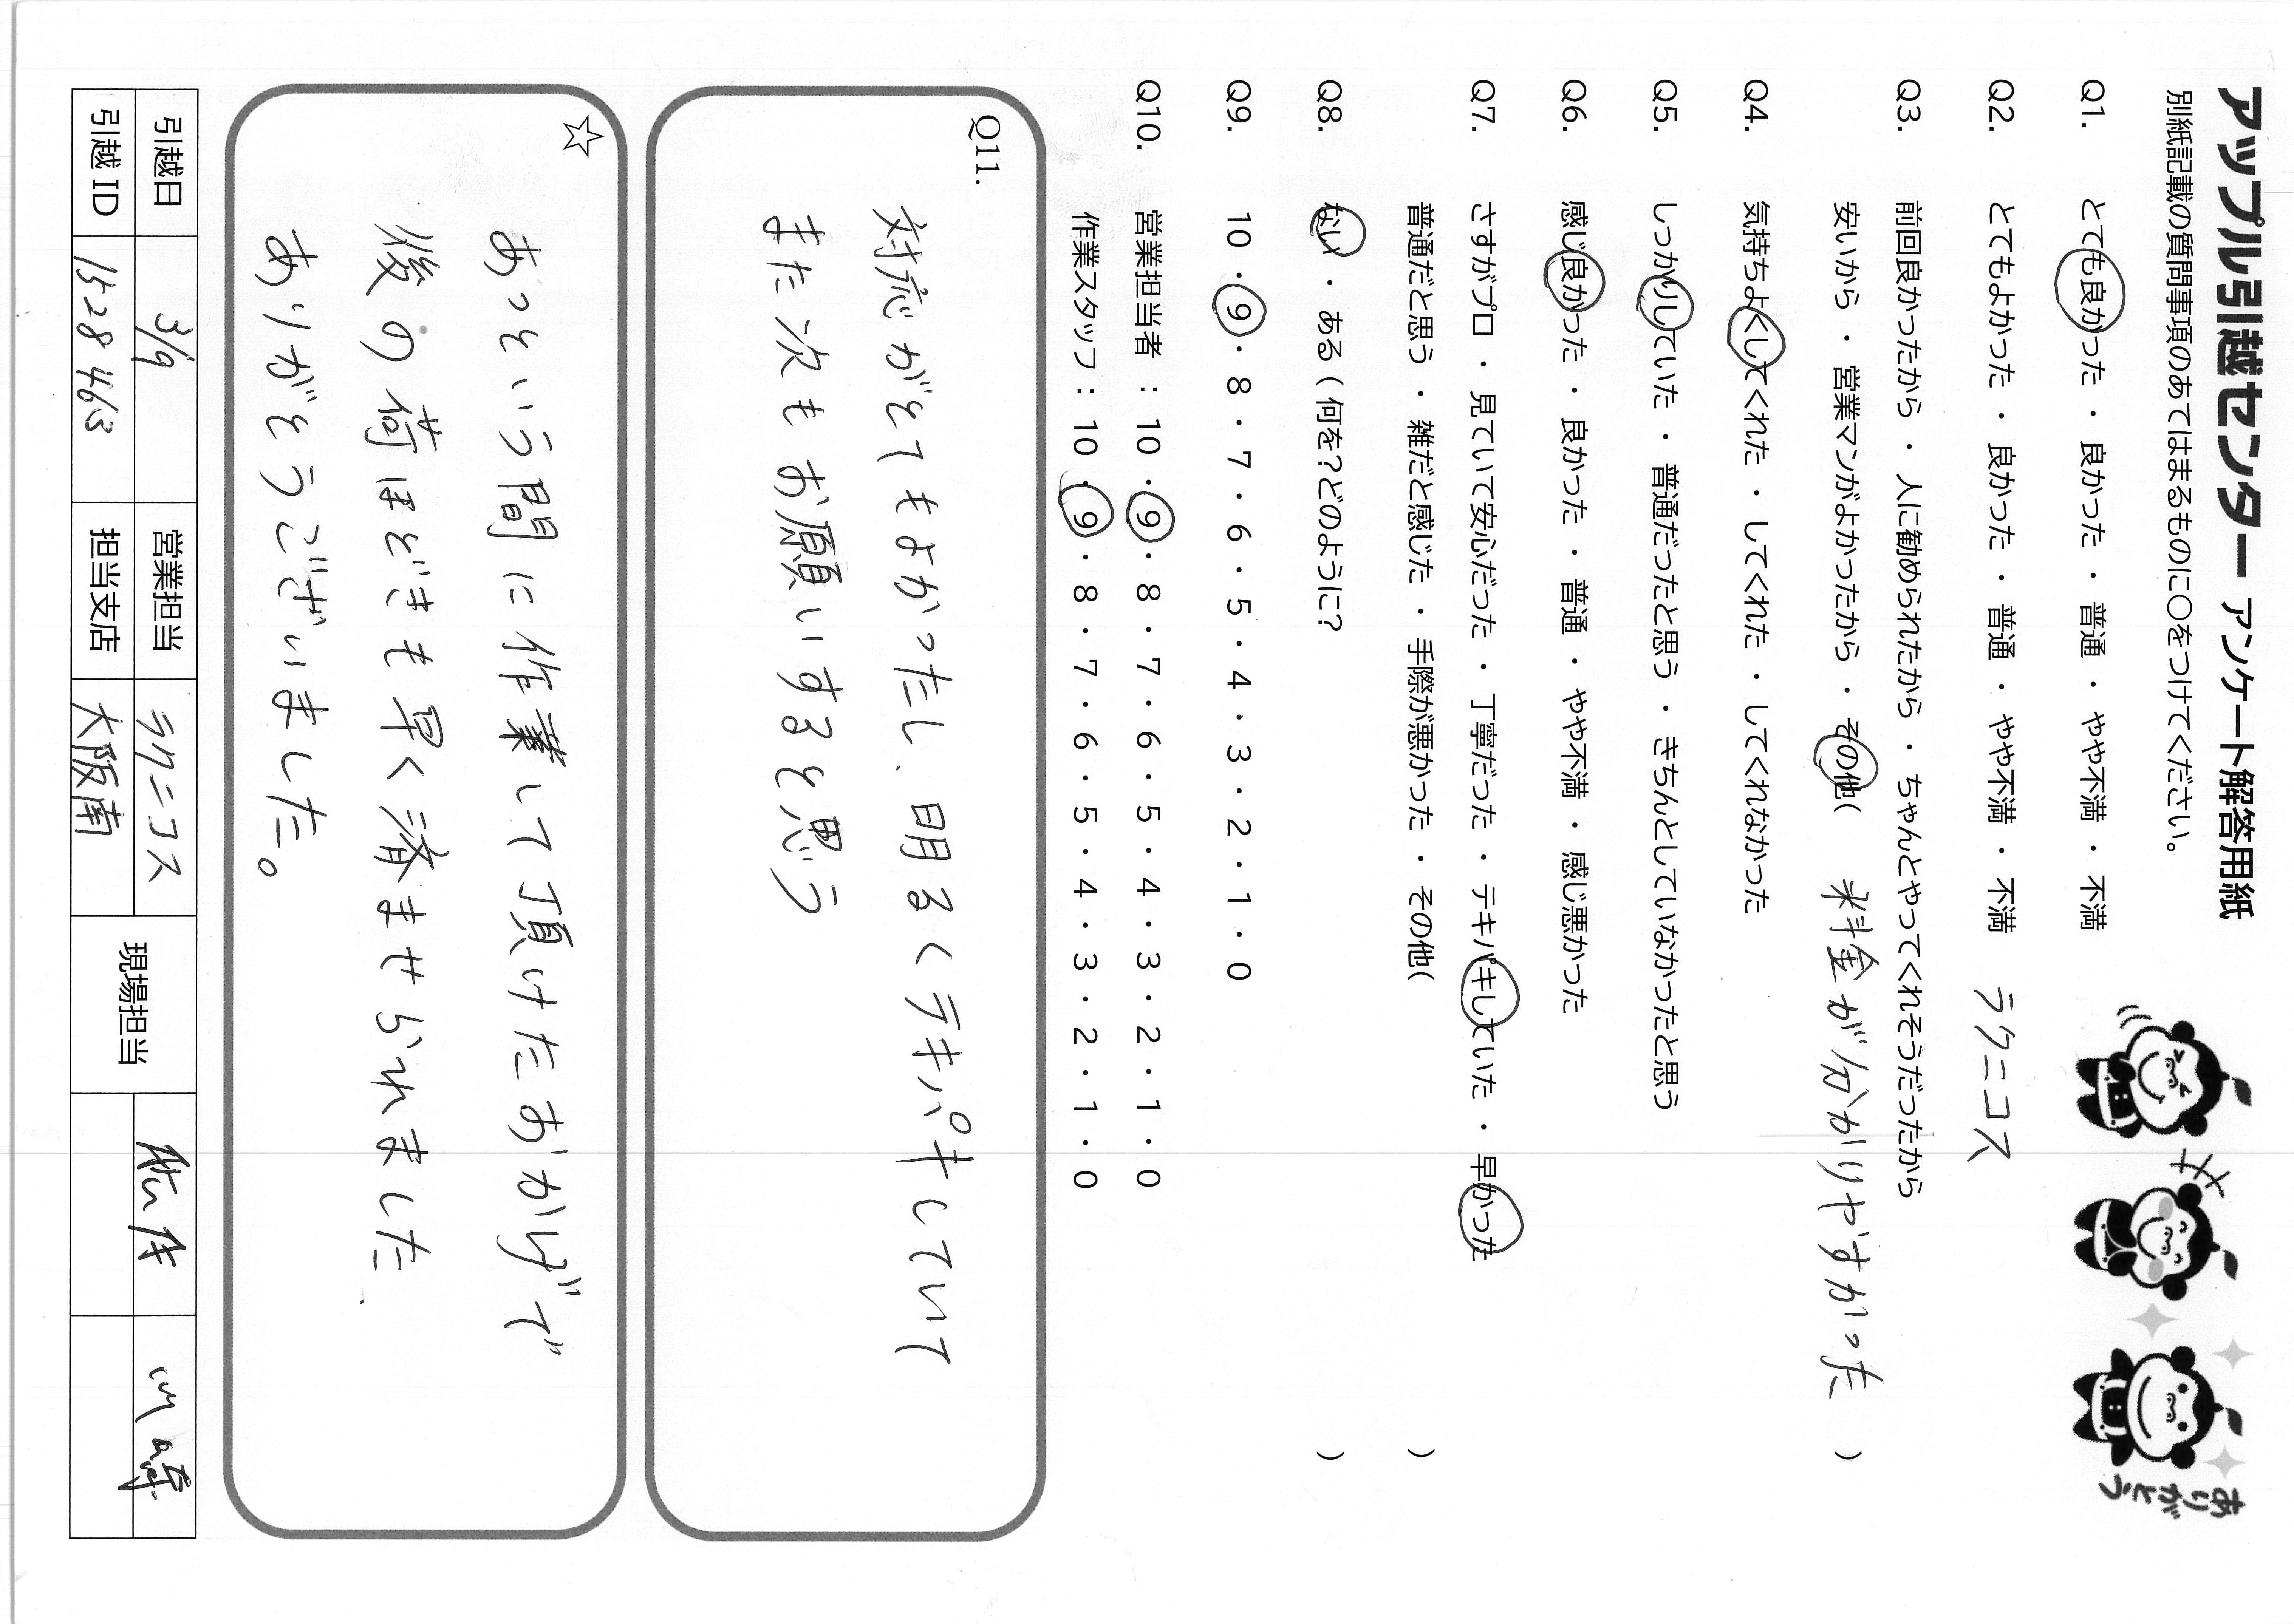 アップル引越センター アンケート解答用紙
別紙記載の質問事項のあてはまるものに○をつけてください。
Q1. とても良かった ・ 良かった ・ 普通 ・ やや不満 ・ 不満
Q2. とてもよかった ・ 良かった ・ 普通 ・ やや不満 ・ 不満 ラクニコス
Q3. 前回良かったから ・ 人に勧められたから ・ ちゃんとやってくれそうだったから
安いから ・ 営業マンがよかったから ・ その他( 料金が分かりやすかった )
Q4. 気持ちよくしてくれた ・ してくれた ・ してくれなかった
Q5. しっかりしていた ・ 普通だったと思う ・ きちんとしていなかったと思う
Q6. 感じ良かった ・ 良かった ・ 普通 ・ やや不満 ・ 感じ悪かった
Q7. さすがプロ ・ 見ていて安心だった ・ 丁寧だった ・ テキパキしていた ・ 早かった
普通だと思う ・ 雑だと感じた ・ 手際が悪かった ・ その他( )
Q8. ない ・ ある( 何を?どのように? )
Q9. 10 ・ 9 ・ 8 ・ 7 ・ 6 ・ 5 ・ 4 ・ 3 ・ 2 ・ 1 ・ 0
Q10. 営業担当者 : 10 ・ 9 ・ 8 ・ 7 ・ 6 ・ 5 ・ 4 ・ 3 ・ 2 ・ 1 ・ 0
作業スタッフ : 10 ・ 9 ・ 8 ・ 7 ・ 6 ・ 5 ・ 4 ・ 3 ・ 2 ・ 1 ・ 0
ありがとう
Q11.
対応がとてもよかったし、明るくテキパキしていて
また次もお願いすると思う
☆
あっという間に作業して頂けたおかげで
後の荷ほどきも早く済ませられました
ありがとうございました。
引越日 3/9 営業担当 ラクニコス 現場担当 川崎
引越 ID 1528463 担当支店 大阪南